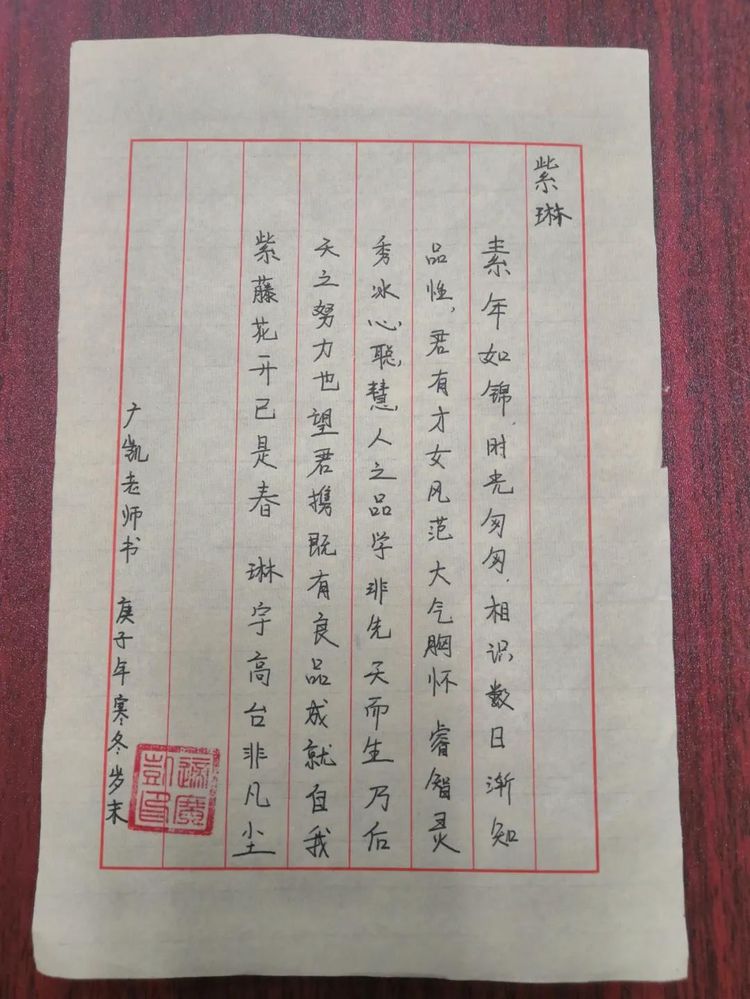 紫琳
素年如锦，时光匆匆，相识数日渐知
品性，君有才女风范大气胸怀睿智灵
秀冰心，聪慧，人之品学非先天而生乃后
天之努力也望君携既有良品成就自我
紫藤花开已是春 琳宇高台非凡尘
广凯老师书 庚子年寒冬岁末